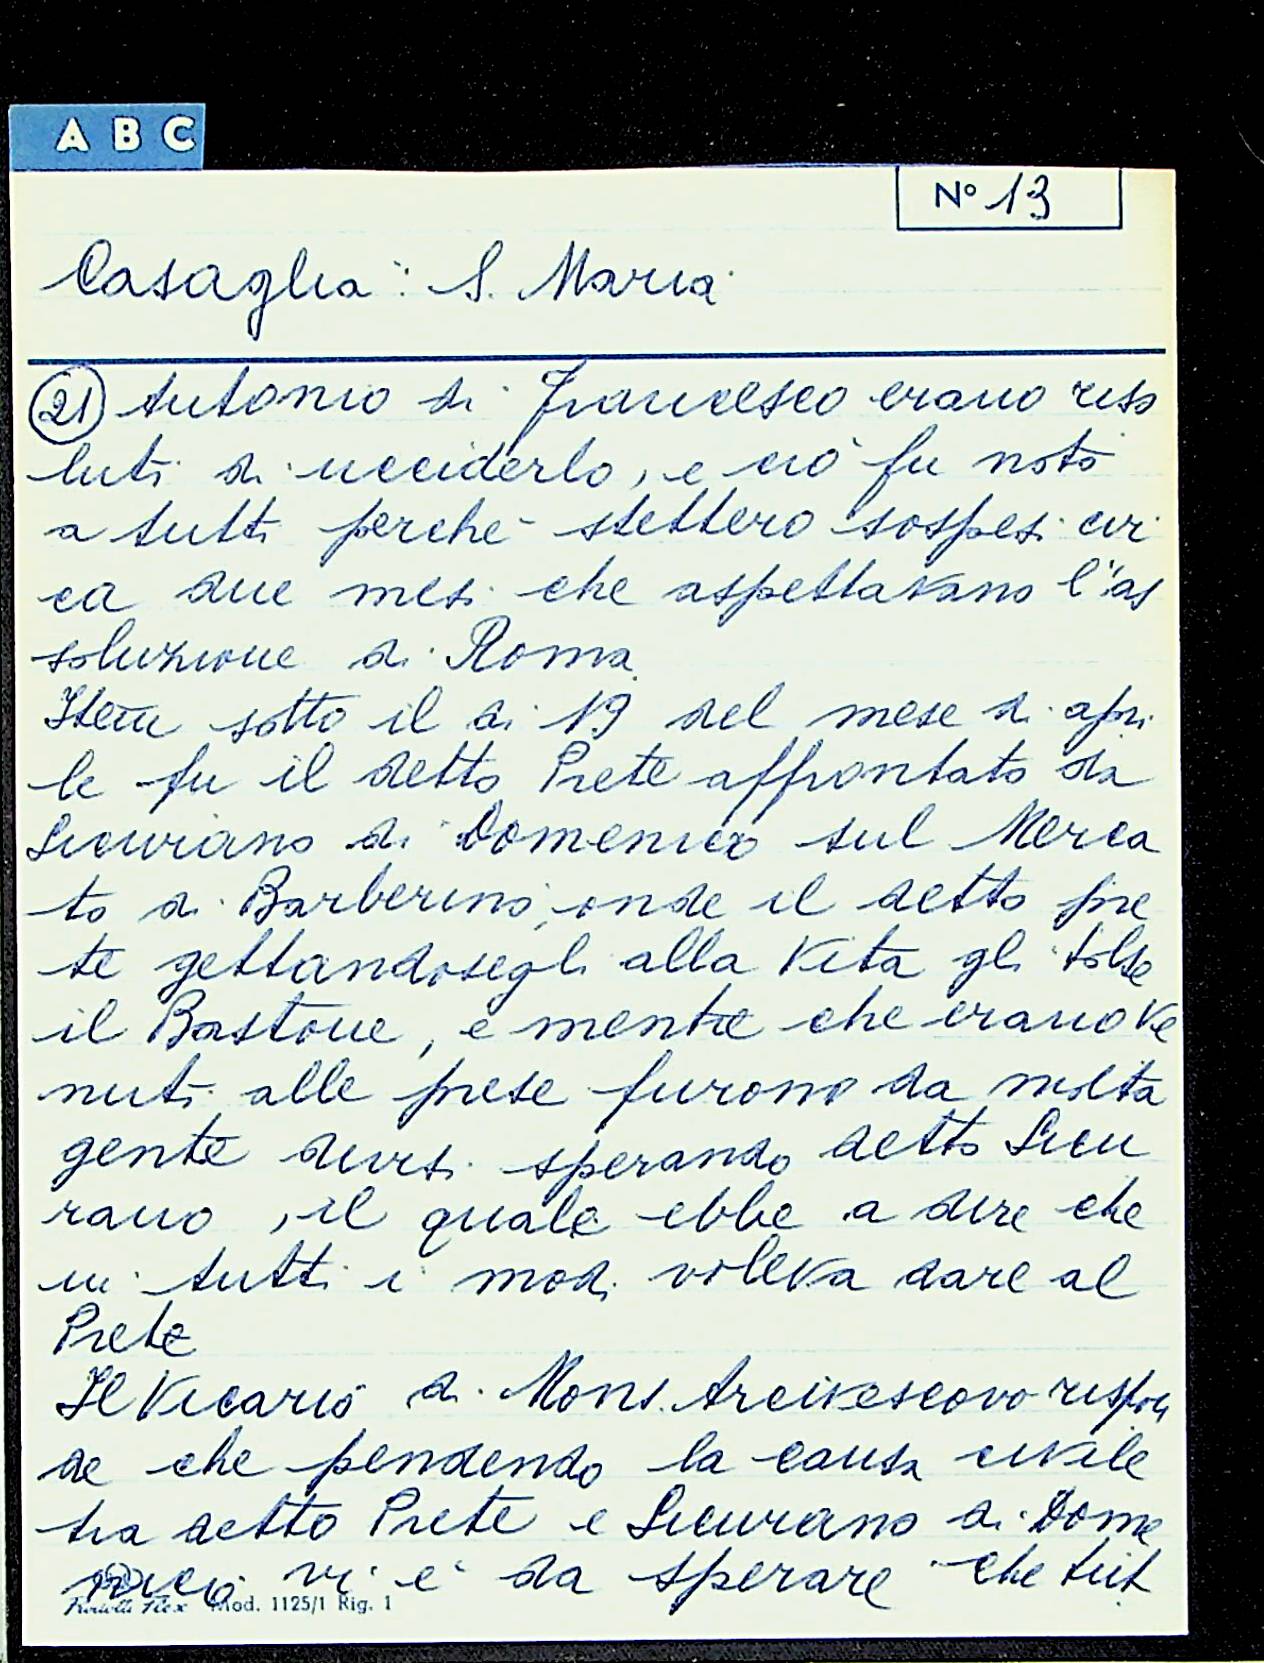 A B C
N° 13
Casaglia: S. Maria
21 Antonio di Francesco erano riso
luti di ucciderlo, e ciò fu noto
a tutti perché stettero sospesi cir
ca due mesi che aspettavano l'as
soluzione di Roma
Item sotto il di 19 del mese di apri
le fu il detto Prete affrontato da
Sicurano di Domenico sul Merca
to di Barberino, onde il detto pre
te gettandosegli alla vita gli tolse
il Bastone, e mentre che erano ve
nuti alle prese furono da molta
gente divisi sperando detto Sicu
rano, il quale ebbe a dire che
in tutti i modi voleva dare al
Prete
Il Vicario di Mons. Arcivescovo rispon
de che pendendo la causa civile
tra detto Prete e Sicurano di Dome
nico vi è da sperare che tut
Mod. 1125/1 Rig. 1